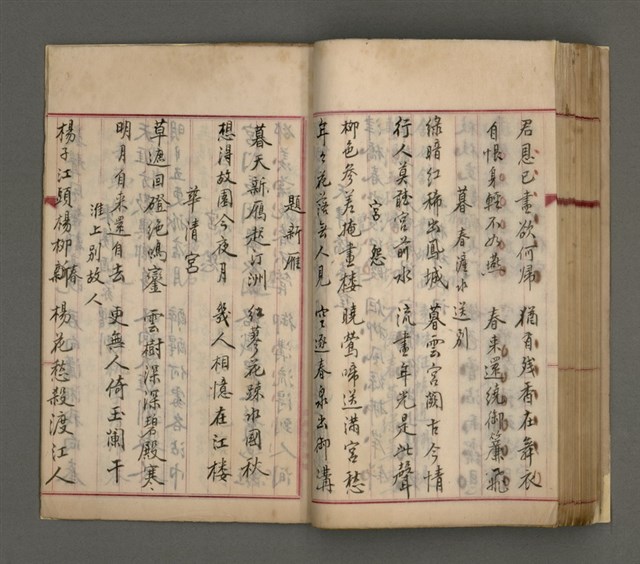 君恩已盡欲何歸　猶有殘香在舞衣
自恨身輕不如燕　春來還繞御簾飛
暮春滻水送別
綠暗紅稀出鳳城　暮雲宮闕古今情
行人莫聽宮前水　流盡年光是此聲
宮怨
柳色參差掩畫樓　曉鶯啼送滿宮愁
年々花落無人見　空逐春泉出御溝
題新雁
暮天新雁起汀洲　紅蓼花踈水國秋
想得故園今夜月　幾人相憶在江樓
華清宮
草遮回磴絕鳴鑾　雲樹深深碧殿寒
明月自來還自去　更無人倚玉闌干
淮上別故人
楊子江頭楊柳新春　楊花愁殺渡江人